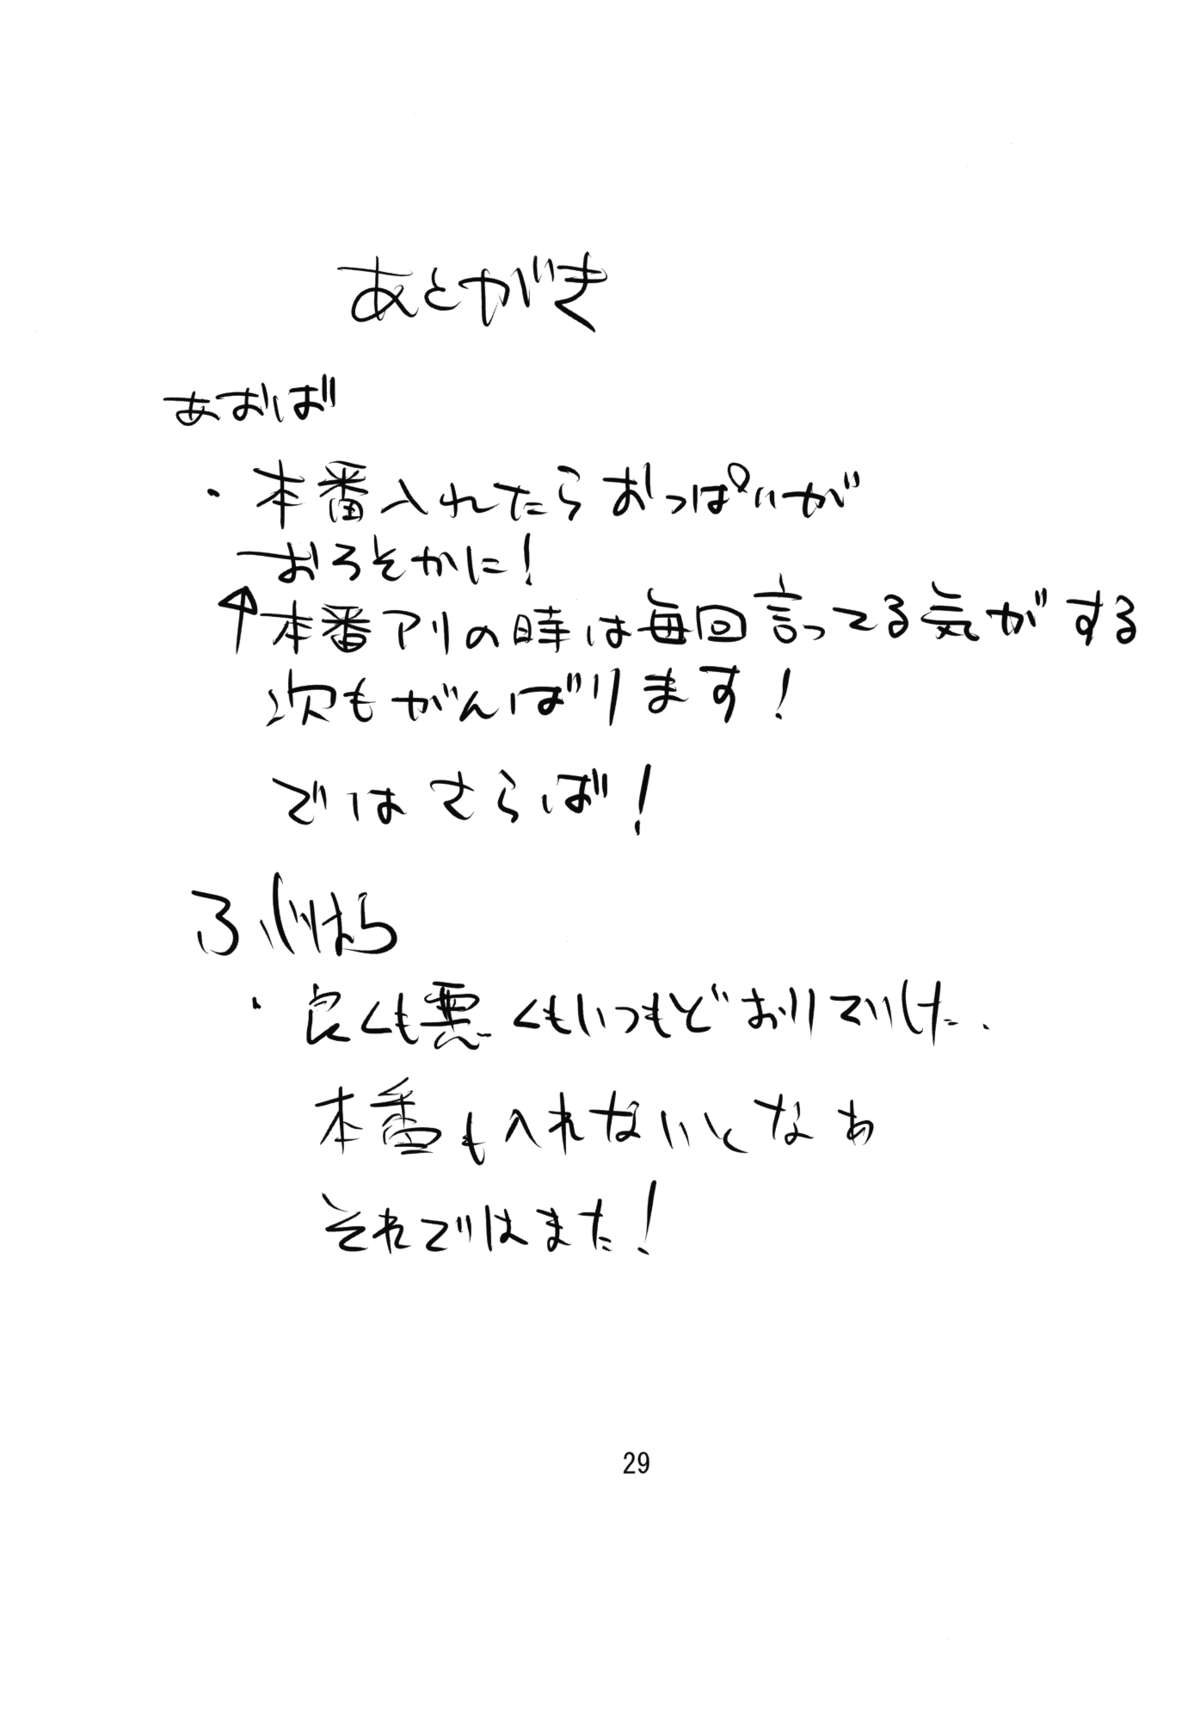 あとがき
あおば
・本番入れたらおっぱいが
おろそかに!
↑本番アリの時は毎回言ってる気がする
次もがんばります!
ではさらば!
ふじはら
・良くも悪くもいつもどおりでいけた.
本番も入れないとなぁ
それではまた!
29